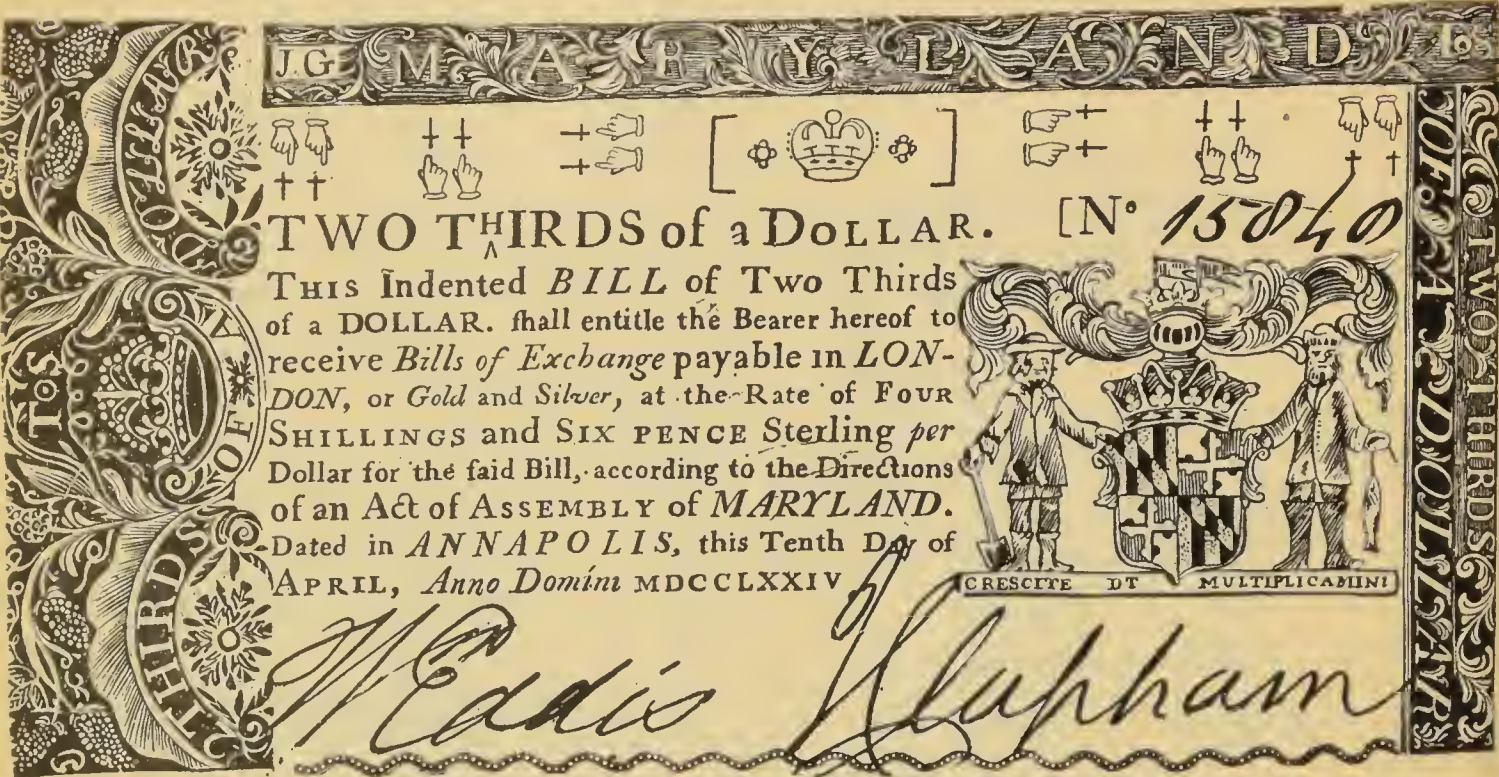 J.G MARYLAND
TWO THIRDS of a DOLLAR. [No 15840
THIS Indented BILL of Two Thirds
of a DOLLAR. ſhall entitle the Bearer hereof to
receive Bills of Exchange payable in LON-
DON, or Gold and Silver, at the Rate of FOUR
SHILLINGS and SIX PENCE Sterling per
Dollar for the ſaid Bill, according to the Directions
of an Act of ASSEMBLY of MARYLAND.
Dated in ANNAPOLIS, this Tenth Day of
APRIL, Anno Domini MDCCLXXIV
CRESCITE DT MULTIPLICAMINI
W Eddis
J Clapham
DOLLAR
OF A
THIRDS
TWO THIRDS
OF A DOLLAR